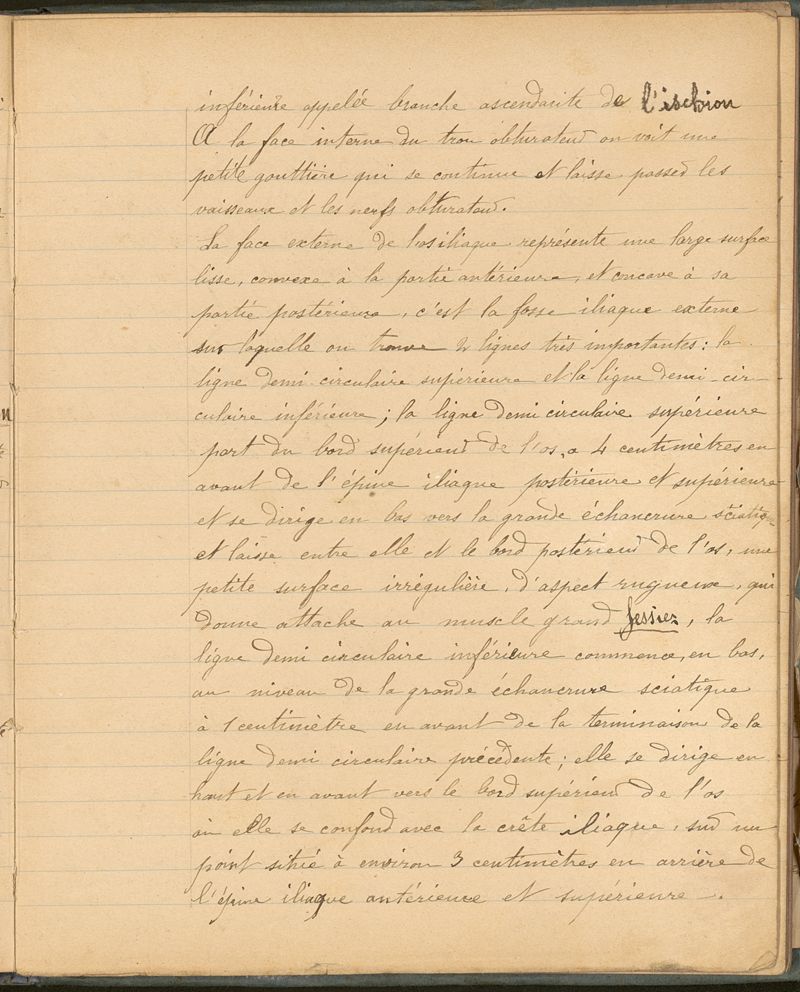 inférieure appelée branche ascendante de l'ischion
A la face interne du trou obturateur on voit une
petite gouttière qui se continue et laisse passer les
vaisseaux et les nerfs obturateur.
La face externe de l'os iliaque représente une large surface
lisse, convexe à la partie antérieure, et concave à sa
partie postérieure, c'est la fosse iliaque externe
sur laquelle on trouve 2 lignes très importantes : la
ligne demi-circulaire supérieure et la ligne demi-cir-
culaire inférieure ; la ligne demi circulaire supérieure
part du bord supérieur de l'os, a 4 centimètres en
avant de l'épine iliaque postérieure et supérieure
et se dirige en bas vers la grande échancrure sciatiq.
et laisse entre elle et le bord postérieur de l'os, une
petite surface irrégulière, d'aspect rugueux, qui
donne attache au muscle grand fessier, la
ligne demi circulaire inférieure commence, en bas,
au niveau de la grande échancrure sciatique
à 1 centimètre en avant de la terminaison de la
ligne demi circulaire précédente ; elle se dirige en
haut et en avant vers le bord supérieur de l'os
où elle se confond avec la crête iliaque, sur un
point situé à environ 3 centimètres en arrière de
l'épine iliaque antérieure et supérieure -.